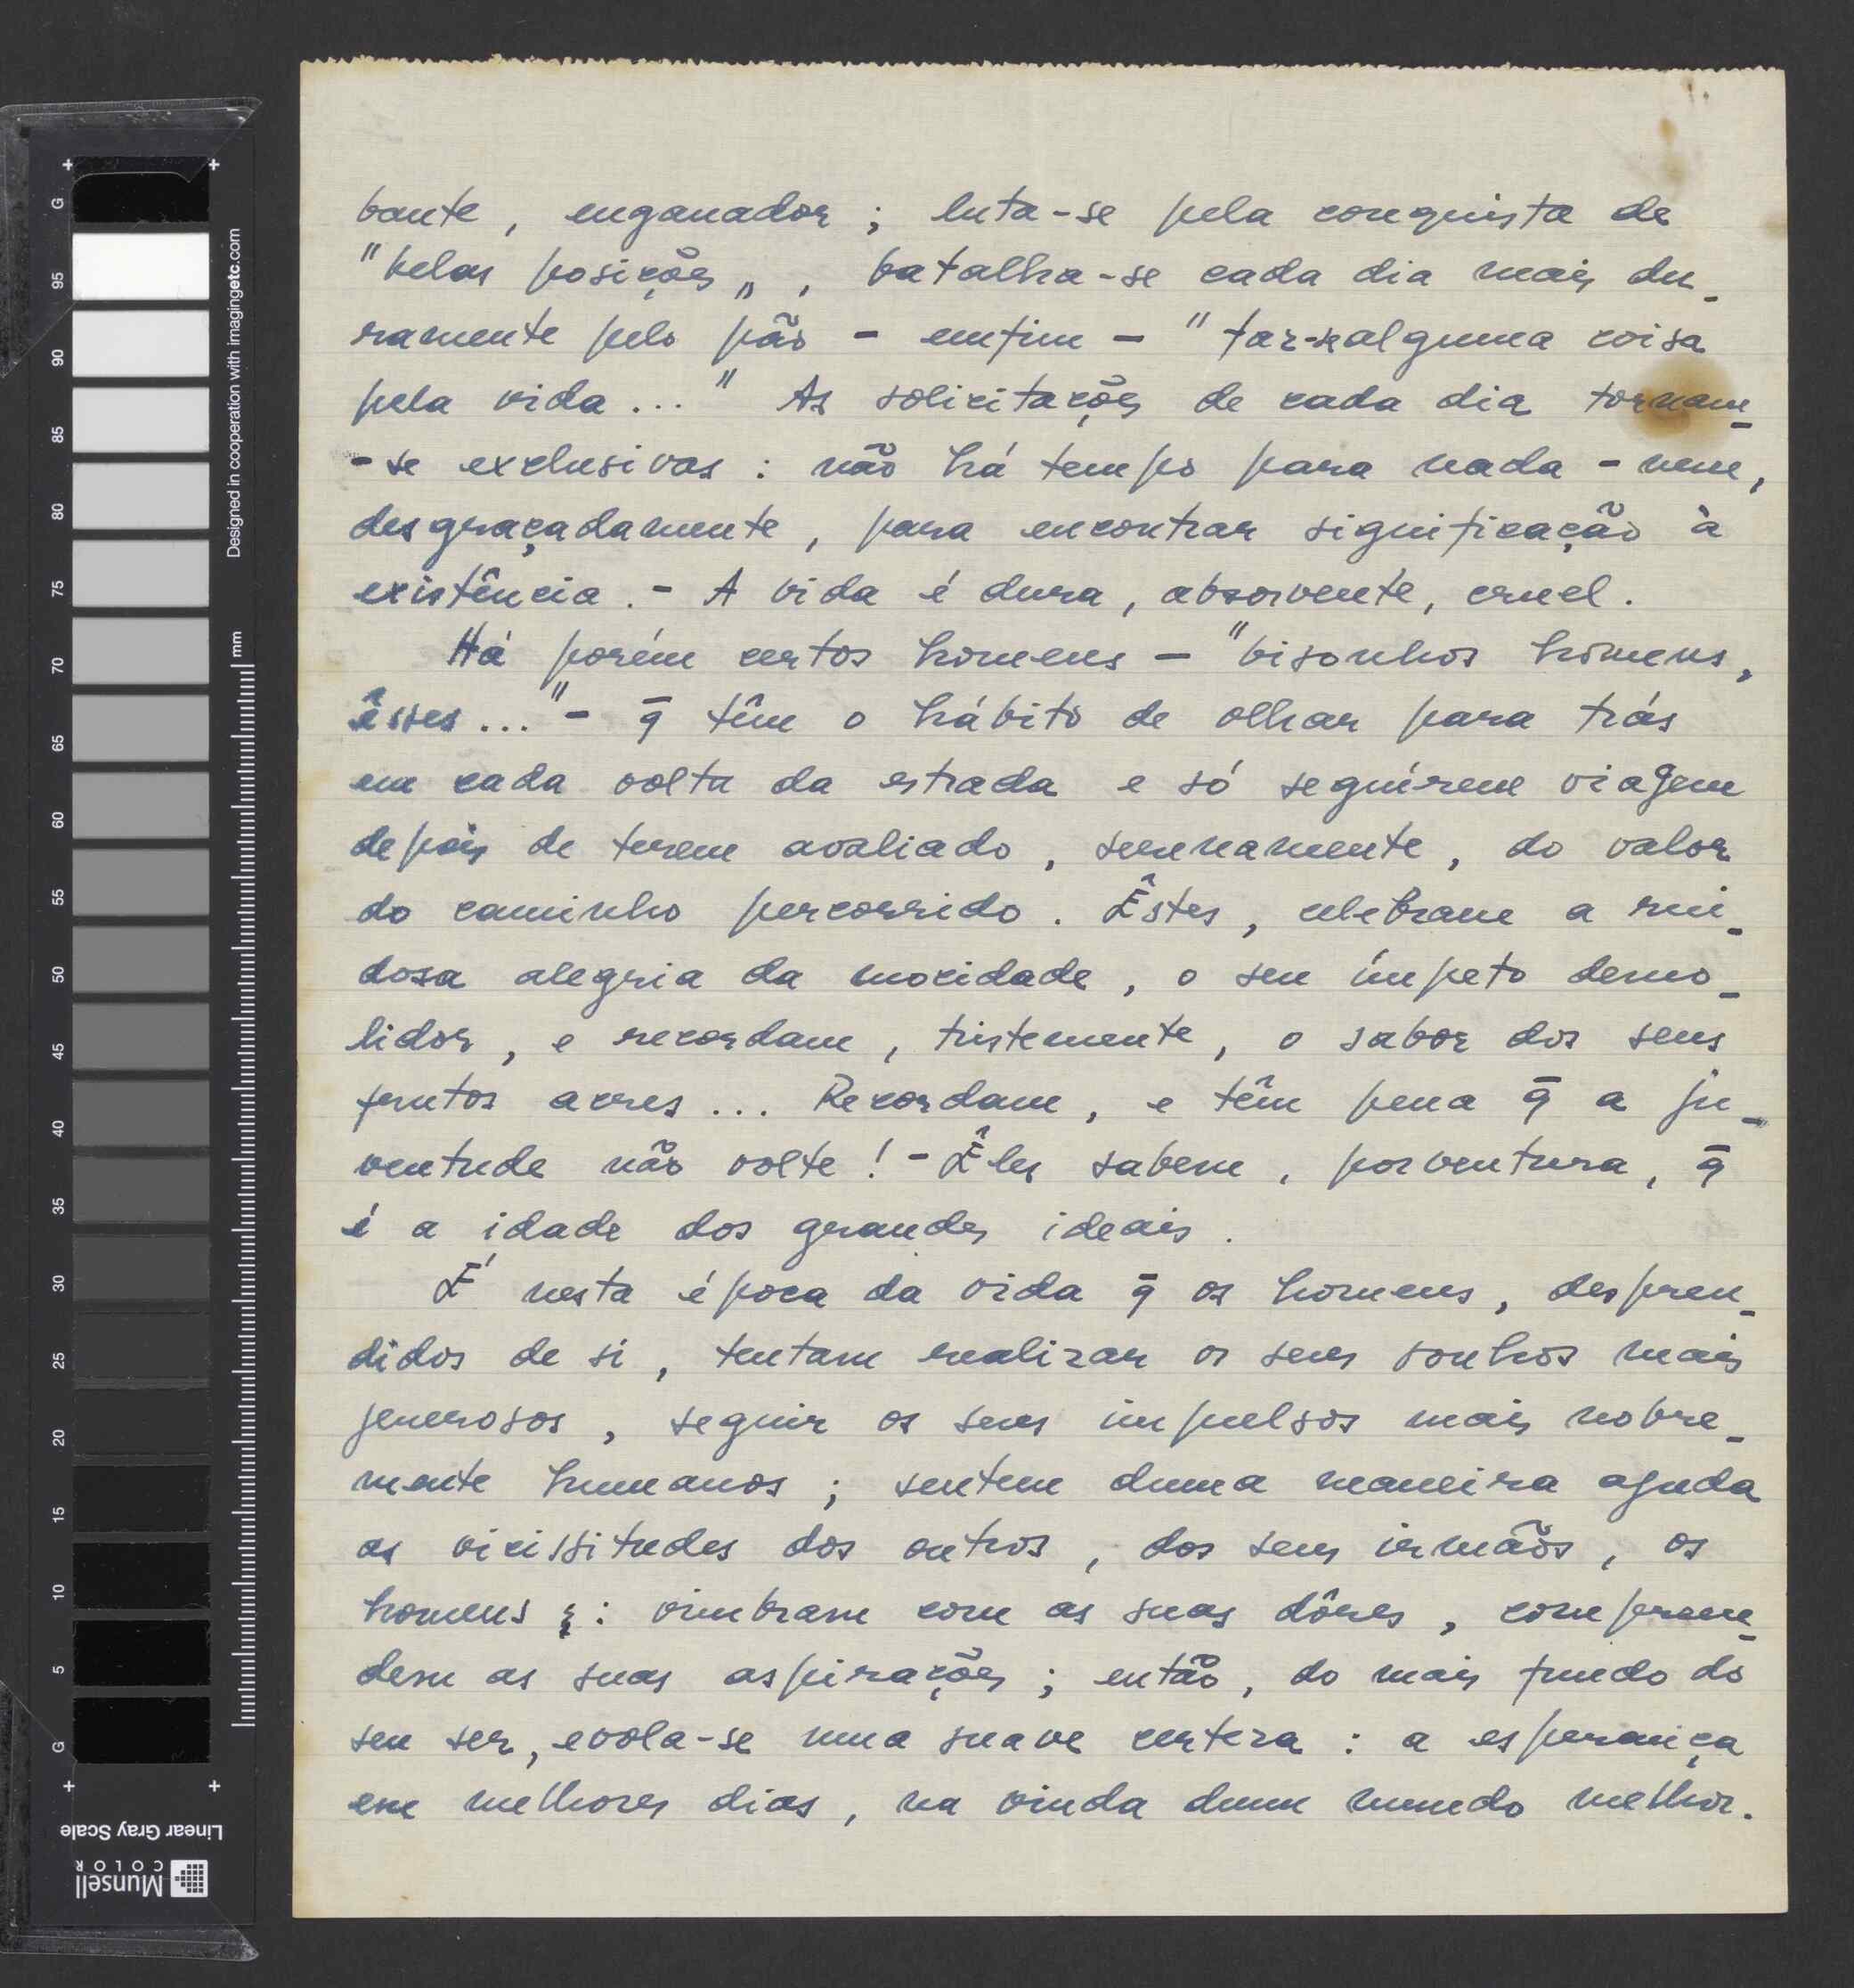 bante, enganador; luta-se pela conquista de
"belas posições„, batalha-se cada dia mais du-
ramente pelo pão - emfim - "faz-se alguma coisa
pela vida..." As solicitações de cada dia tornam-
-se exclusivas: não há tempo para nada - nem,
desgraçadamente, para encontrar significação à
existência. - A vida é dura, absorvente, cruel.
Há porém certos homens - "bisonhos homens,
êsses..." - q̄ têm o hábito de olhar para trás
em cada volta da estrada e só seguirem viagem
depois de terem avaliado, serenamente, do valor
do caminho percorrido. Êstes, celebram a rui-
dosa alegria da mocidade, o seu ímpeto demo-
lidor, e recordam, tristemente, o sabor dos seus
frutos acres... Recordam, e têm pena q̄ a ju-
ventude não volte! - Êles sabem, porventura, q̄
é a idade dos grandes ideais.
É nesta época da vida q̄ os homens, despren-
didos de si, tentam realizar os seus sonhos mais
generosos, seguir os seus impulsos mais nobre-
mente humanos; sentem duma maneira aguda
as vicissitudes dos outros, dos seus irmãos, os
homens: vimbram com as suas dôres, compreen-
dem as suas aspirações; então, do mais fundo do
seu ser, evola-se uma suave certeza: a esperança
em melhores dias, na vinda dum mundo melhor.
Designed in cooperation with imagingetc.com
mm
G 95 90 85 80 75 70 65 60 55 50 45 40 35 30 25 20 15 10 5 G
Linear Gray Scale
Munsell
COLOR